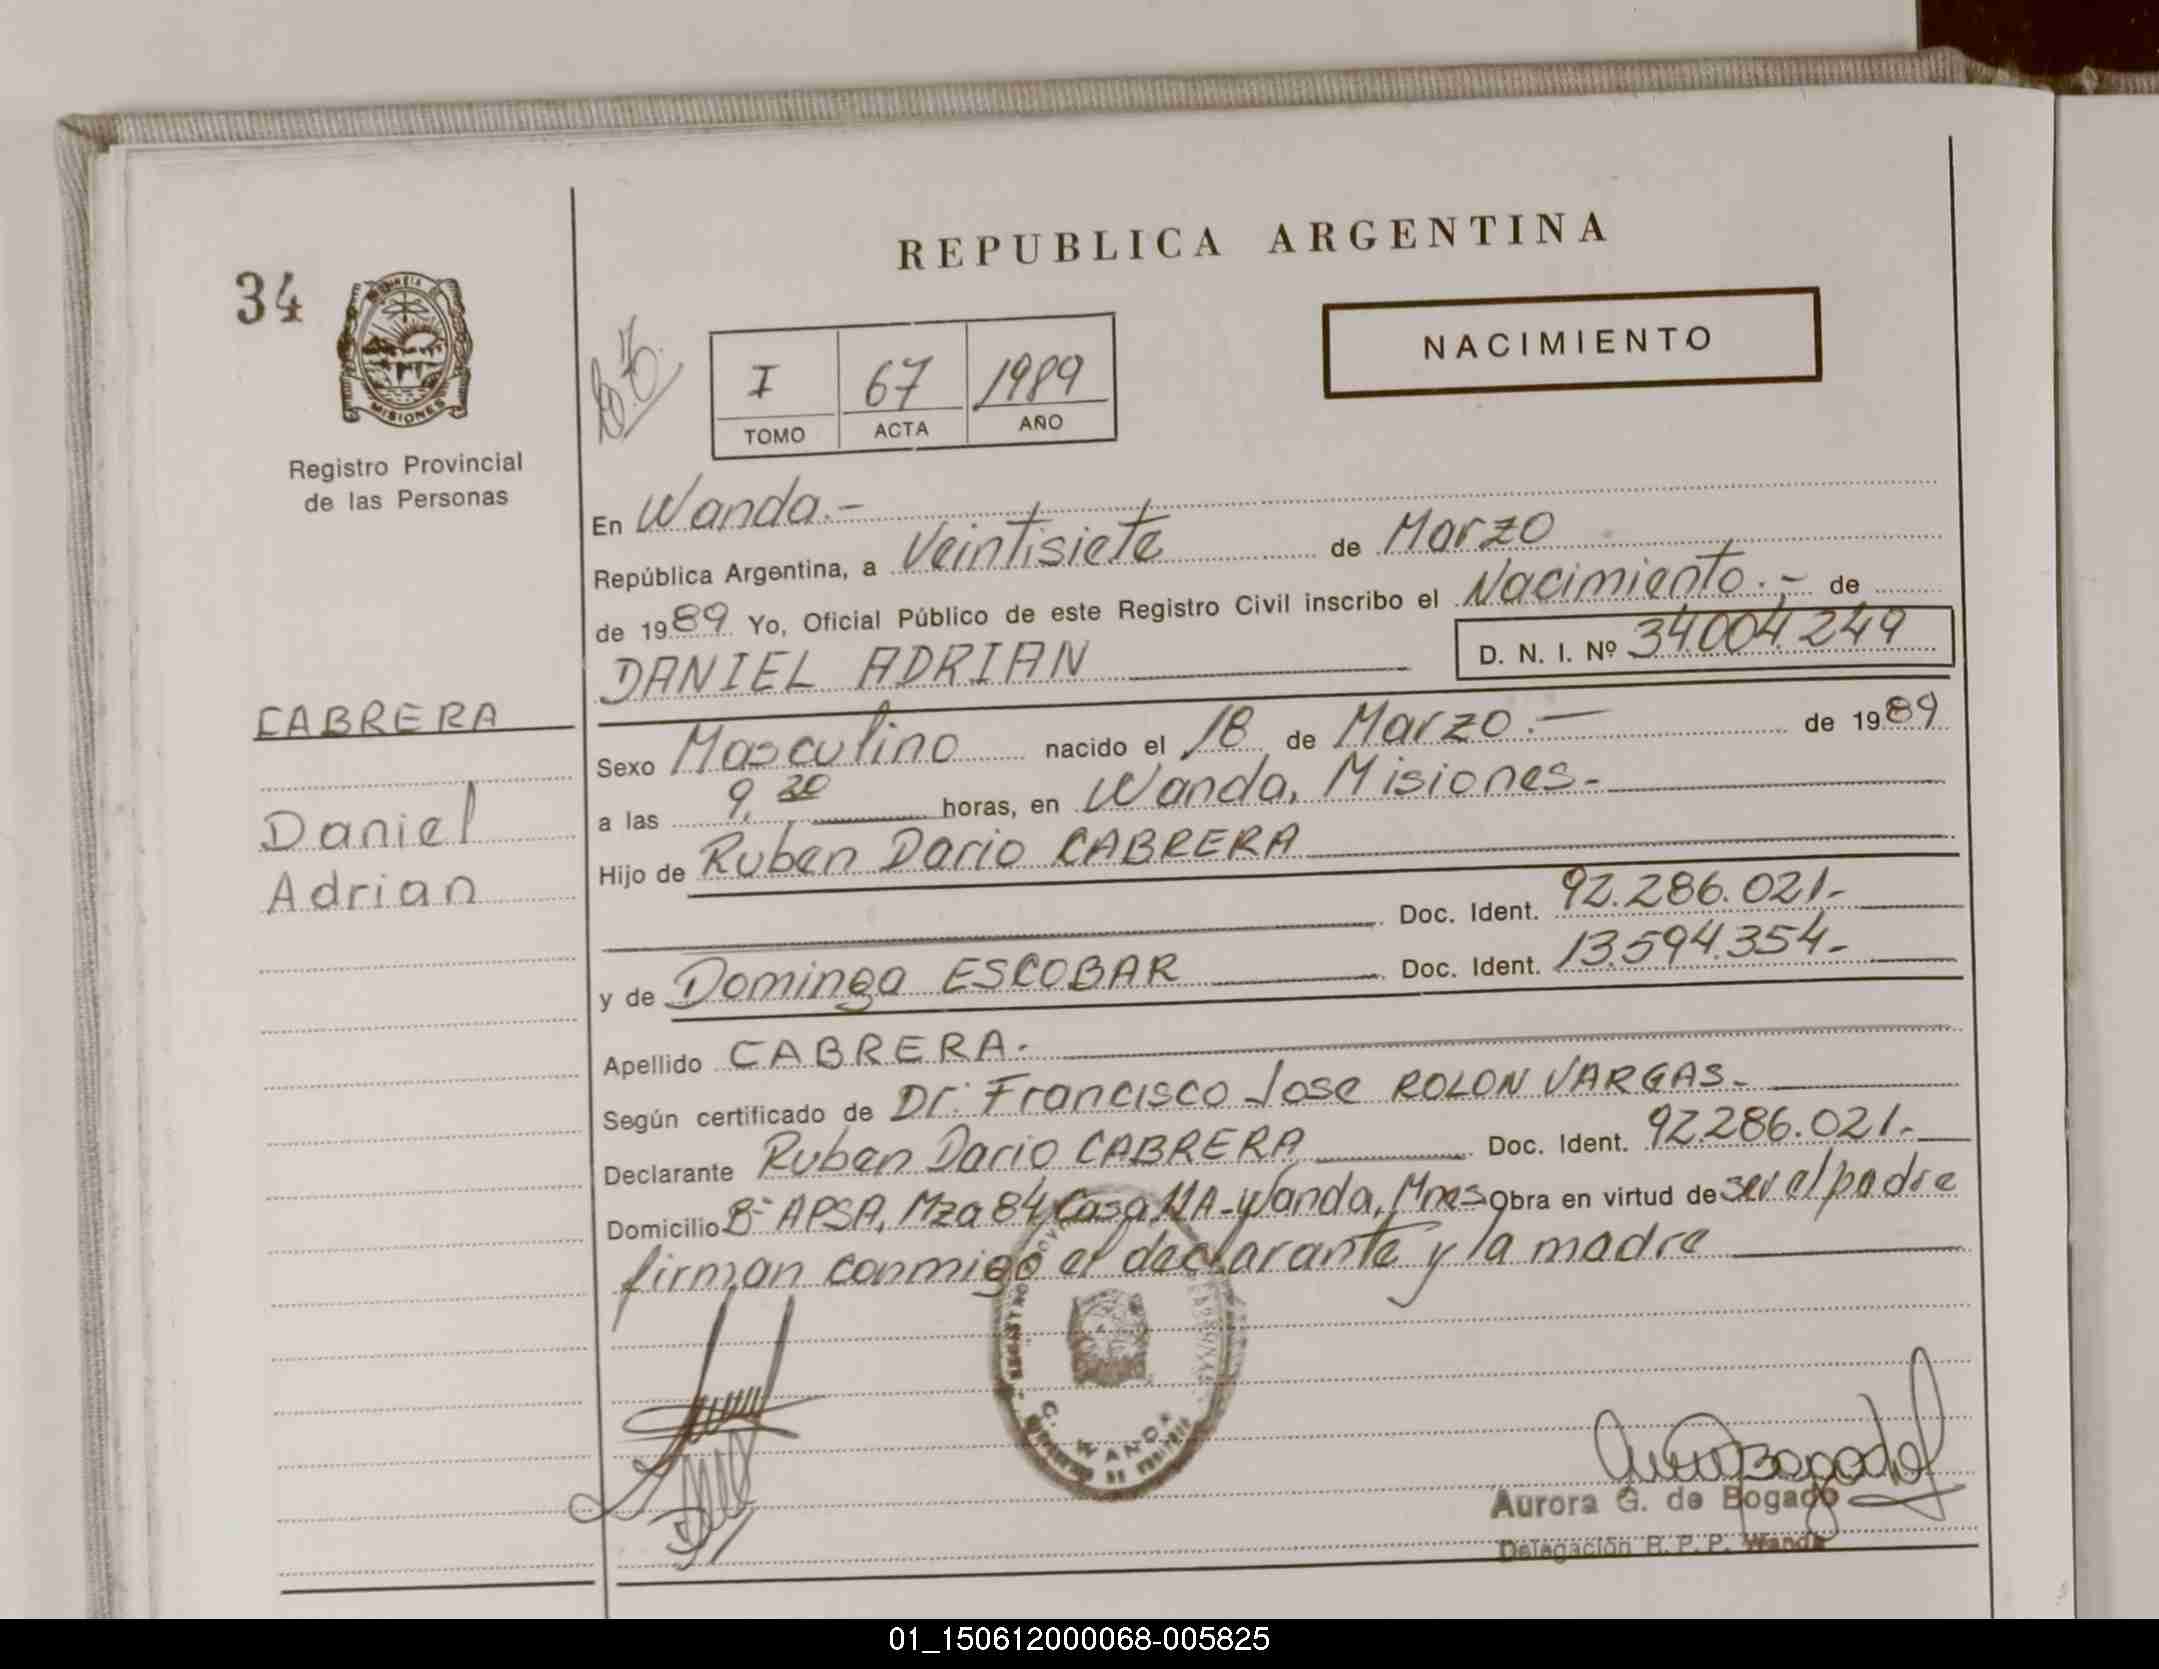 34
PROVINCIA DE
MISIONES
Registro Provincial
de las Personas
CABRERA
Daniel
Adrian
REPUBLICA ARGENTINA
NACIMIENTO
I 67 1989
TOMO ACTA AÑO
En Wanda.-
República Argentina, a Veintisiete de Marzo
de 1989 Yo, Oficial Público de este Registro Civil inscribo el Nacimiento.- de
DANIEL ADRIAN D. N. I. Nº 34.004.249
Sexo Masculino nacido el 18 de Marzo.- de 1989
a las 9,20 horas, en Wanda, Misiones-
Hijo de Ruben Dario CABRERA
Doc. Ident. 92.286.021.-
y de Dominga ESCOBAR Doc. Ident. 13.594.354-
Apellido CABRERA.
Según certificado de Dr. Francisco Jose ROLON VARGAS-
Declarante Ruben Dario CABRERA Doc. Ident. 92.286.021.-
Domicilio Bº APSA, Mza 84 Casa 11A-Wanda, Mnes Obra en virtud de ser el padre
firman conmigo el declarante y la madre
WANDA
Aurora G. de Bogado
Delegación R. P. P. Wanda
01_150612000068-005825